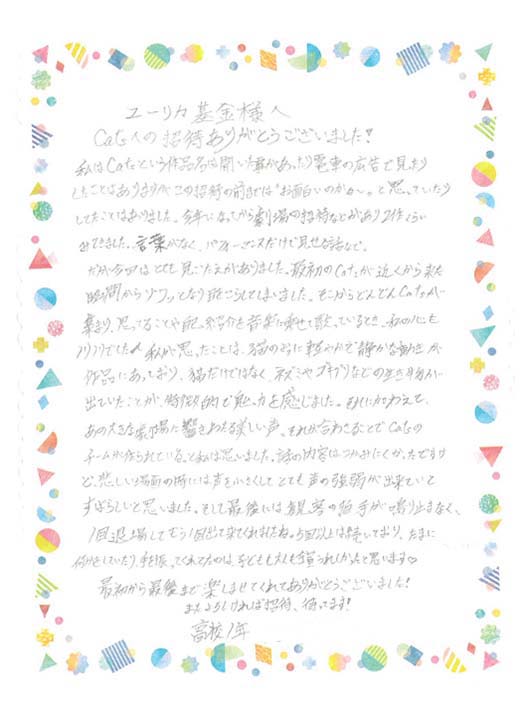 ユーリカ基金様へ
Catsへの招待ありがとうございました!
私はCatsという作品名は聞いた事があったり電車の広告で見たり
したことはありますがこの招待の前までは"お面白いのかな〜。と思っていたり
してたことはありました。今年になってから劇場の招待などがあり2作くらい
出てきました。言葉がなく、パフォーマンスだけで見せる話など。
だが今回はとても見ごたえがありました。最初のCatsが近くから来た
瞬間からゾワッとなり してしまいました。そこからどんどんCatsが
集まり、思ってることや自己紹介を音楽に乗せて歌っているとき、私の心も
ノリノリでした 私が思ったことは、猫のように軽やかで静かな動きが
作品にあっており、猫だけではなく、ネズミやゴキブリなどの生き物が
出ていたことが、特徴的で魅力を感じました。それに加わえて、
あの大きな劇場に響きわたる美しい声。それが合わさることでCatsの
チームが作られている。と私は思いました。話の内容はつかみにくかったですけ
ど、悲しい場面の時には声を小さくしてとても声の強弱が出来ていて
すばらしいと思いました。そして最後には観客の拍手が鳴り止まなく、
1回退場してもう1回出て来てくれましたね。5回以上は続いており、たまに
何かをしていたり、手を振ってくれてたのは、子どもも大人も皆うれしかったと思います♡
最初から最後まで楽しませてくれてありがとうございました!
またよろしければ招待、待ってます!
高校1年